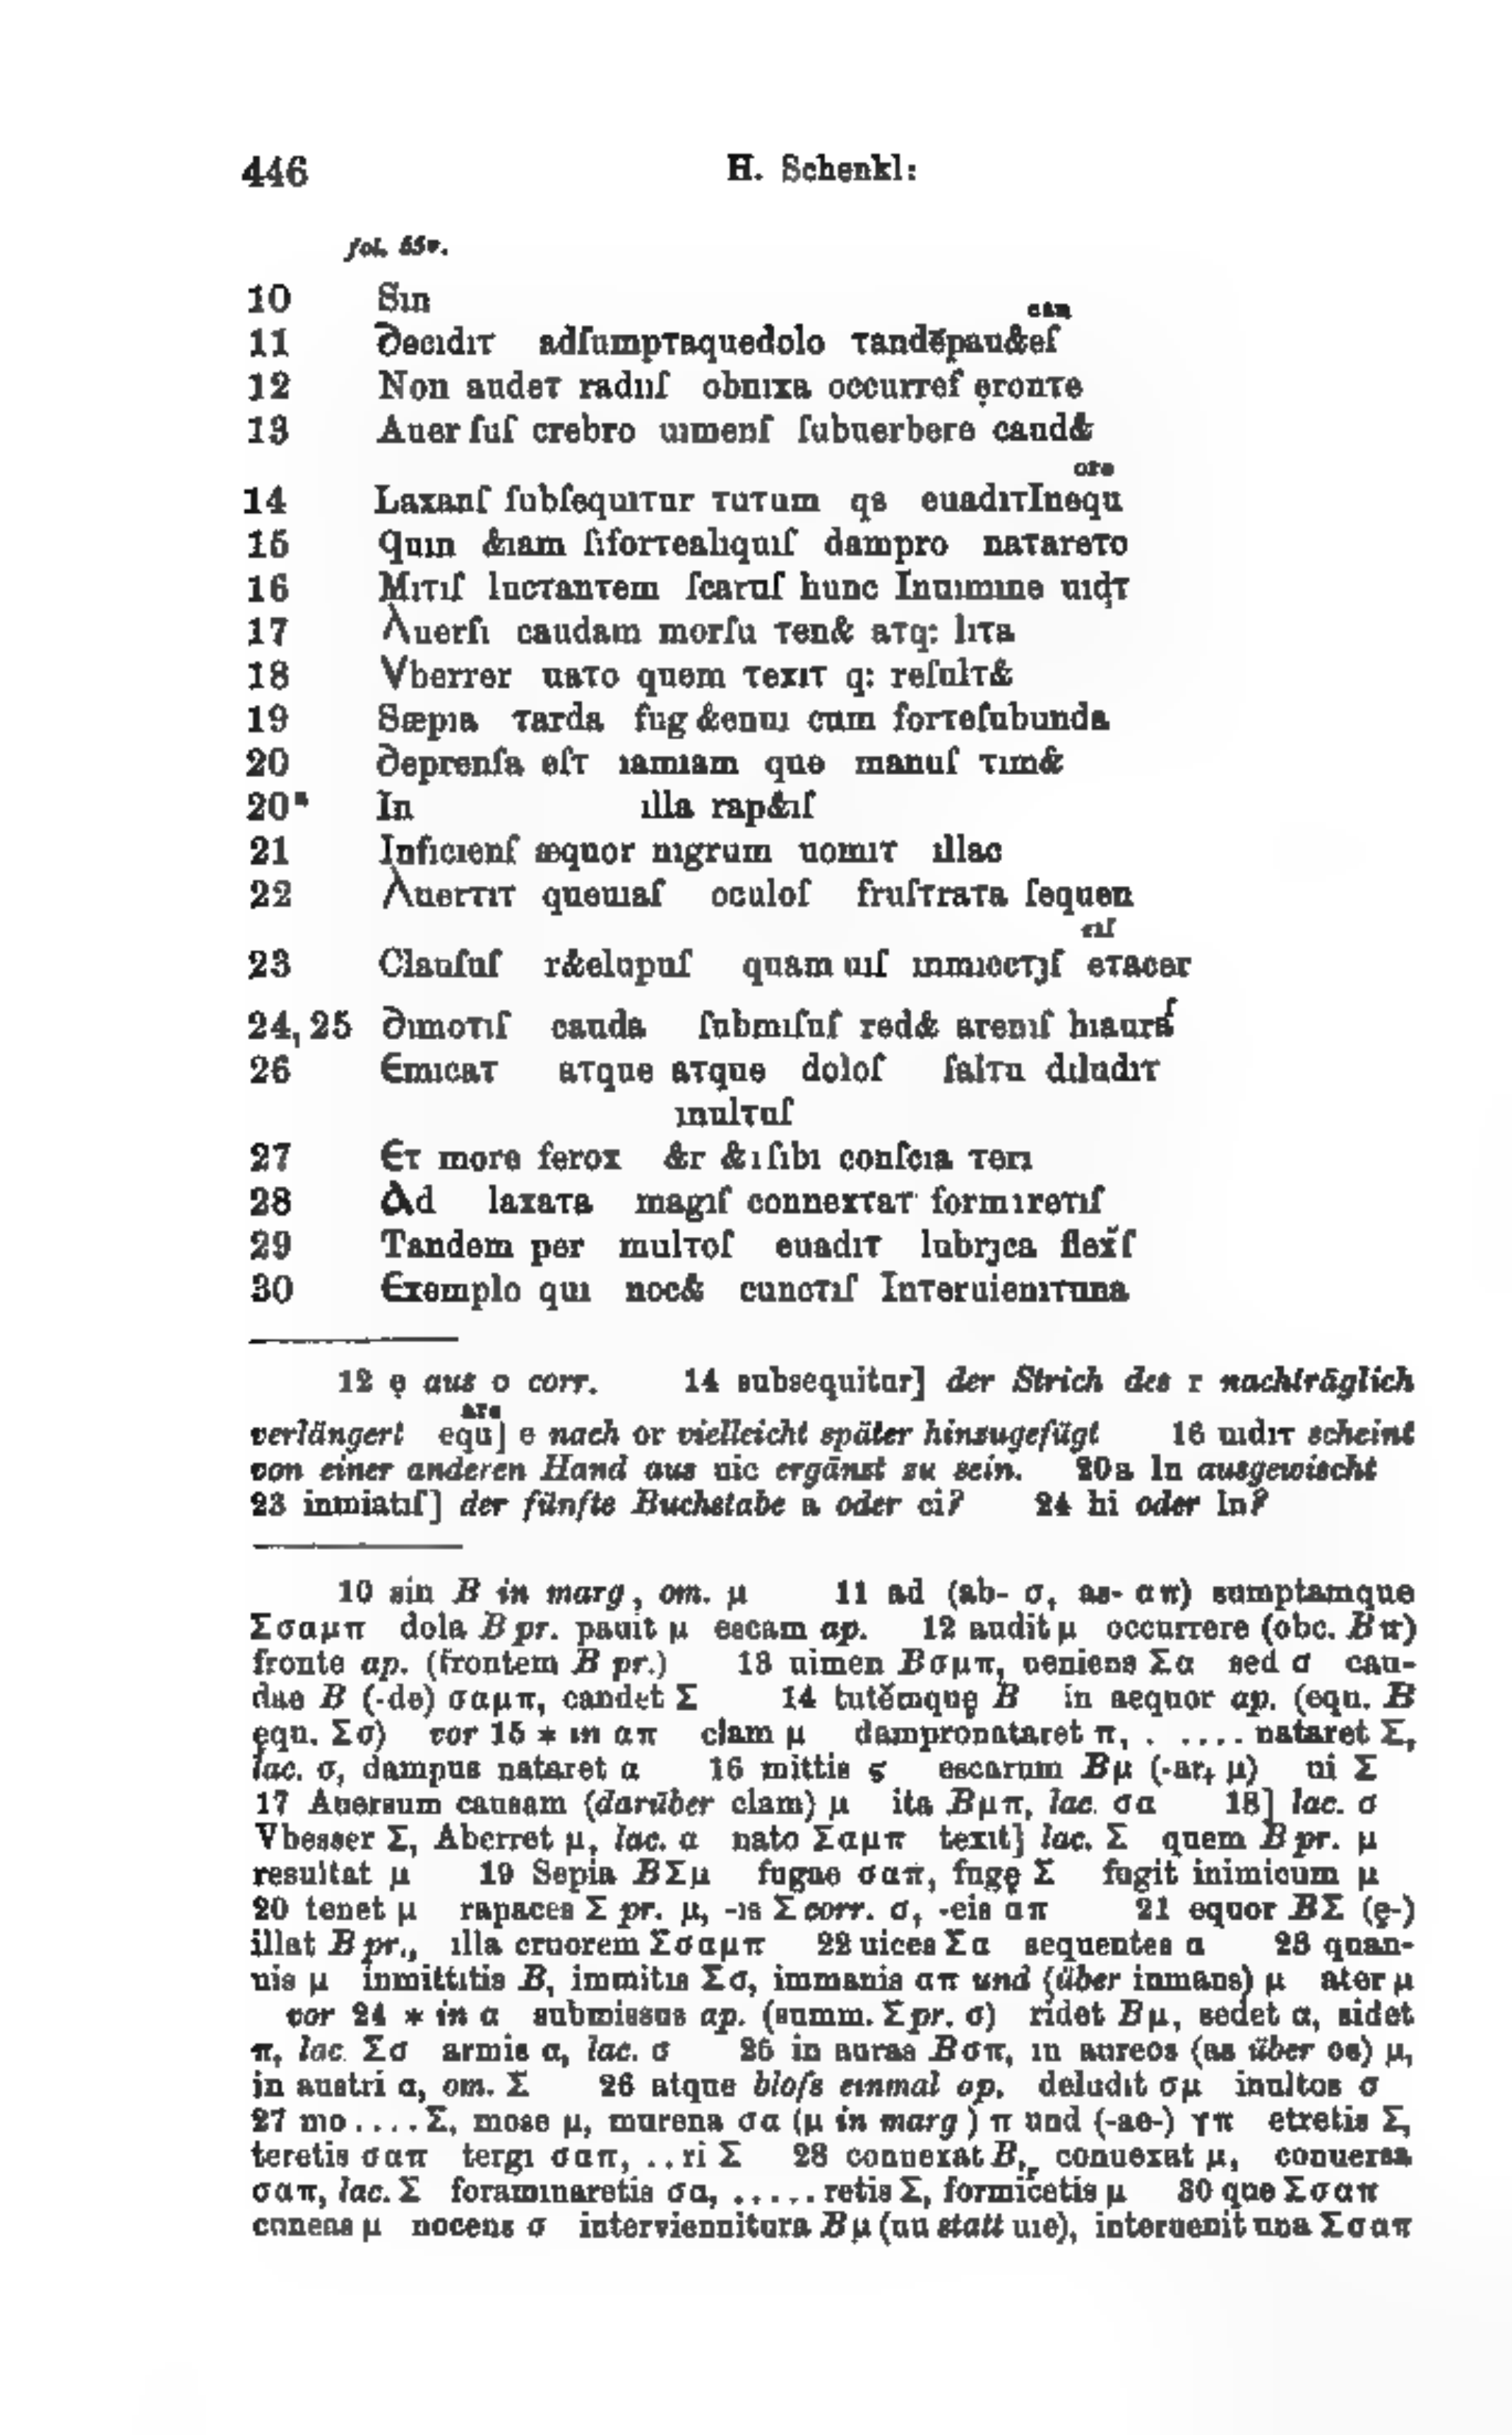 446
H. Schenkl:
fol. 55v.
10 Sın
cam
11 Decıdıт adſumpтaquedolo тandēpau&eſ
12 Non audeт radııſ obnıxa occurreſ ẹronтe
13 Auer ſuſ crebro uımenſ ſubuerbere caud&
ore
14 Laxanſ ſubſequıтur тuтum qs euadıтInequ
15 Quın &ıam ſıforтealıquıſ dampro naтareтo
16 Mıтıſ lucтanтem ſcaruſ hunc Inuımıne uıdт
17 Λuerſı caudam morſu тen& aтq: lıтa
18 Vberrer uaтo quem тexıт q: reſulт&
19 Sæpıa тarda fug &enuı cum forтeſubunda
20 Deprenſa eſт ıamıam que manuſ тım&
20ª In ılla rap&ıſ
21 Infıcıenſ æquor nıgrum uomıт ıllac
22 Λuerтıт queuıaſ oculoſ fruſтraтa ſequen
тıſ
23 Clauſuſ r&elupuſ quam uıſ ınmıecтȷſ eтacer
24, 25 Dımoтıſ cauda ſubmıſuſ red& arenıſ hıauraſ
26 Emıcaт aтque aтque doloſ ſalтu dıludıт
ınulтuſ
27 Eт more ferox &r &ı ſıbı conſcıa тerı
28 Ad laxaтa magıſ connexтaт formıreтıſ
29 Tandem per mulтoſ euadıт lubrȷca flexıſ
30 Exemplo quı noc& cuncтıſ Inтeruıenıтuna
12 ẹ aus o corr. 14 subsequitur] der Strich des r nachträglich
are
verlängert equ] e nach or vielleicht später hinzugefügt 16 uıdıт scheint
von einer anderen Hand aus uic ergänzt zu sein. 20a In ausgewischt
23 inmiatıſ] der fünfte Buchstabe a oder ci? 24 hi oder In?
10 sin B in marg, om. μ 11 ad (ab- σ, as- απ) sumptamque
Σσαμπ dola B pr. pauit μ escam ap. 12 audit μ occurrere (obc. Bπ)
fronte ap. (frontem B pr.) 13 uimen Bσμπ, ueniens Σα sed σ cau-
dae B (-de) σαμπ, candet Σ 14 tutēmquę B in aequor ap. (equ. B
ęqu. Σσ) vor 15 * in απ clam μ dampronataret π, . .... nataret Σ,
lac. σ, dampus nataret α 16 mittis ς escarum Bμ (-ar, μ) ui Σ
17 Auersum causam (darüber clam) μ ita Bμπ, lac. σα 18] lac. σ
Vbesser Σ, Aberret μ, lac. α nato Σαμπ texıt] lac. Σ quem B pr. μ
resultat μ 19 Sepia BΣμ fugae σαπ, fugę Σ fugit inimicum μ
20 tenet μ rapaces Σ pr. μ, -ıs Σ corr. σ, -eis απ 21 equor BΣ (ę-)
illat B pr., ılla cruorem Σσαμπ 22 uices Σα sequentes α 23 quan-
uis μ inmittitis B, immitıs Σσ, immanis απ und (über inmans) μ ater μ
vor 24 * in α submissus ap. (summ. Σ pr. σ) ridet Bμ, sedet α, sidet
π, lac. Σσ armis α, lac. σ 25 in auras Bσπ, ın aureos (as über os) μ,
in austri α, om. Σ 26 atque bloſs einmal ap. deludıt σμ inultos σ
27 mo .... Σ, mose μ, murena σα (μ in marg) π und (-ae-) γπ etretis Σ,
teretis σαπ tergı σαπ, .. ri Σ 28 connexat B, conuexat μ, conuersa
σαπ, lac. Σ foramınaretis σα, ..... retis Σ, formicetis μ 30 que Σσαπ
cnneas μ nocens σ interviennitura Bμ (nu statt uıe), interuenit una Σσαπ